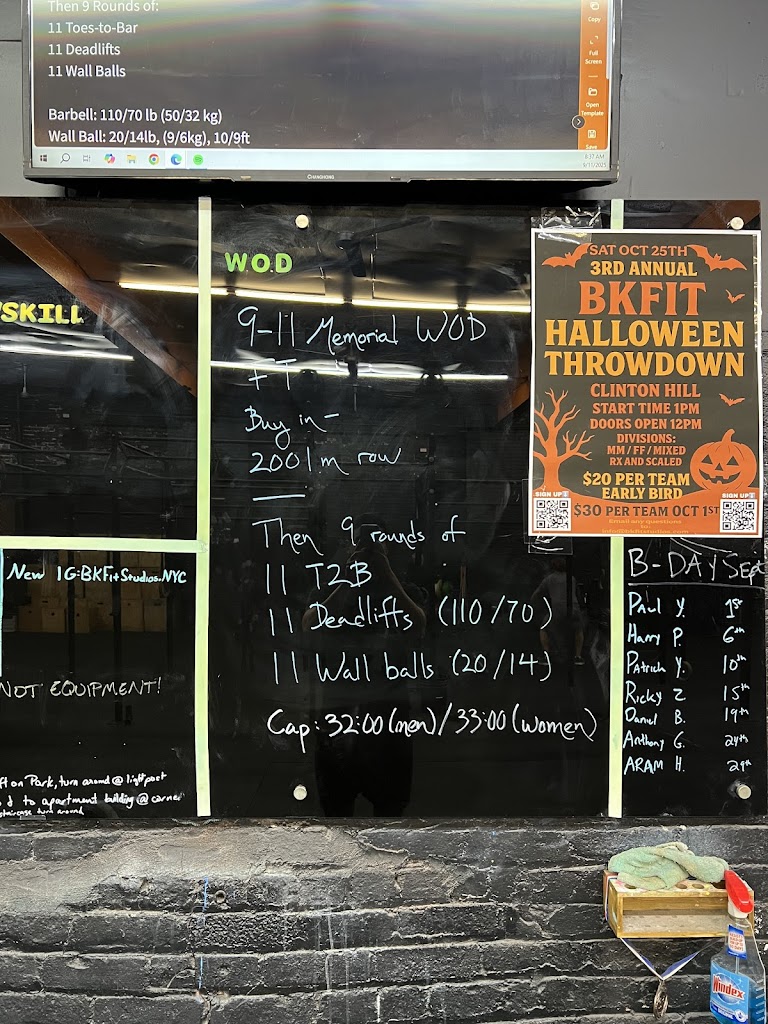 Then 9 Rounds of:
11 Toes-to-Bar
11 Deadlifts
11 Wall Balls
Barbell: 110/70 lb (50/32 kg)
Wall Ball: 20/14lb, (9/6kg), 10/9ft
Copy
Full Screen
Open Template
Save
8:37 AM
9/11/2025
CHANGHONG
SKILL
New IG:BKFitStudios.NYC
NOT EQUIPMENT!
ft on Park, turn around @ lightpost
d to apartment building @ corner
staircase turn around
W.O.D
9-11 Memorial WOD
FT
Buy in-
2001m row
Then 9 rounds of
11 T2B
11 Deadlifts (110/70)
11 Wall balls (20/14)
Cap: 32:00 (men) / 33:00 (women)
SAT OCT 25TH
3RD ANNUAL
BKFIT
HALLOWEEN
THROWDOWN
CLINTON HILL
START TIME 1PM
DOORS OPEN 12PM
DIVISIONS:
MM / FF / MIXED
RX AND SCALED
$20 PER TEAM
EARLY BIRD
SIGN UP
SIGN UP
$30 PER TEAM OCT 1ST
Email any questions
B-DAY Sept
Paul Y. 1st
Harry P. 6th
Patrick Y. 10th
Ricky Z 15th
Daniel B. 19th
Anthony G. 24th
ARAM H. 29th
Windex